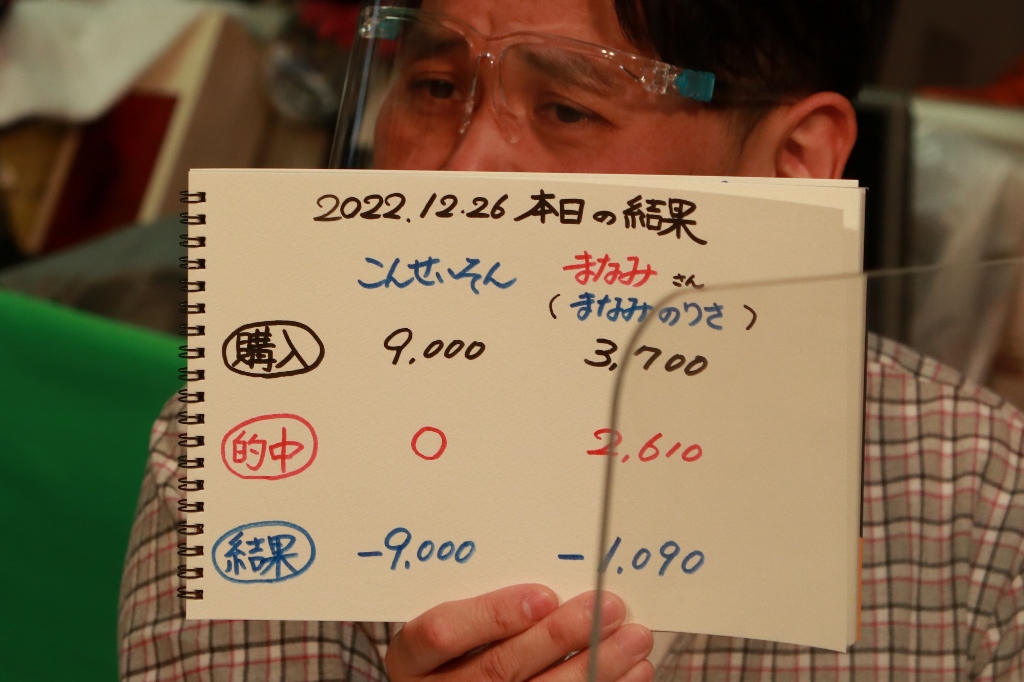 2022.12.26 本日の結果
こんせいそん まなみ さん
(まなみのりさ)
購入 9,000 3,700
的中 0 2,610
結果 -9,000 -1,090